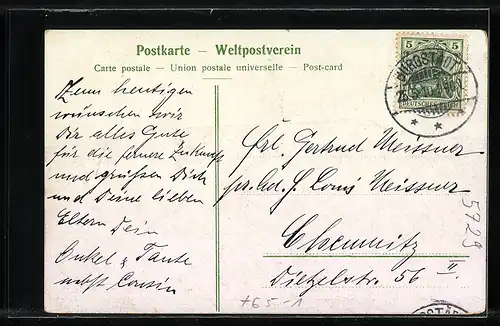 Postkarte – Weltpostverein
Carte postale – Union postale universelle – Post-card
5 5
BURGSTÄDT
DEUTSCHES
Zum heutigen
wünschen wir
Dir alles Gute
für die fernere Zukunft
und grüßen Dich
und Deine lieben
Eltern Dein
Onkel & Tante
nebst Cousin
Frl. Gertrud Meissner
pr. Ad. H. Louis Meissner
Chemnitz
Dietzelstr. 56 II.
5729
+65-1